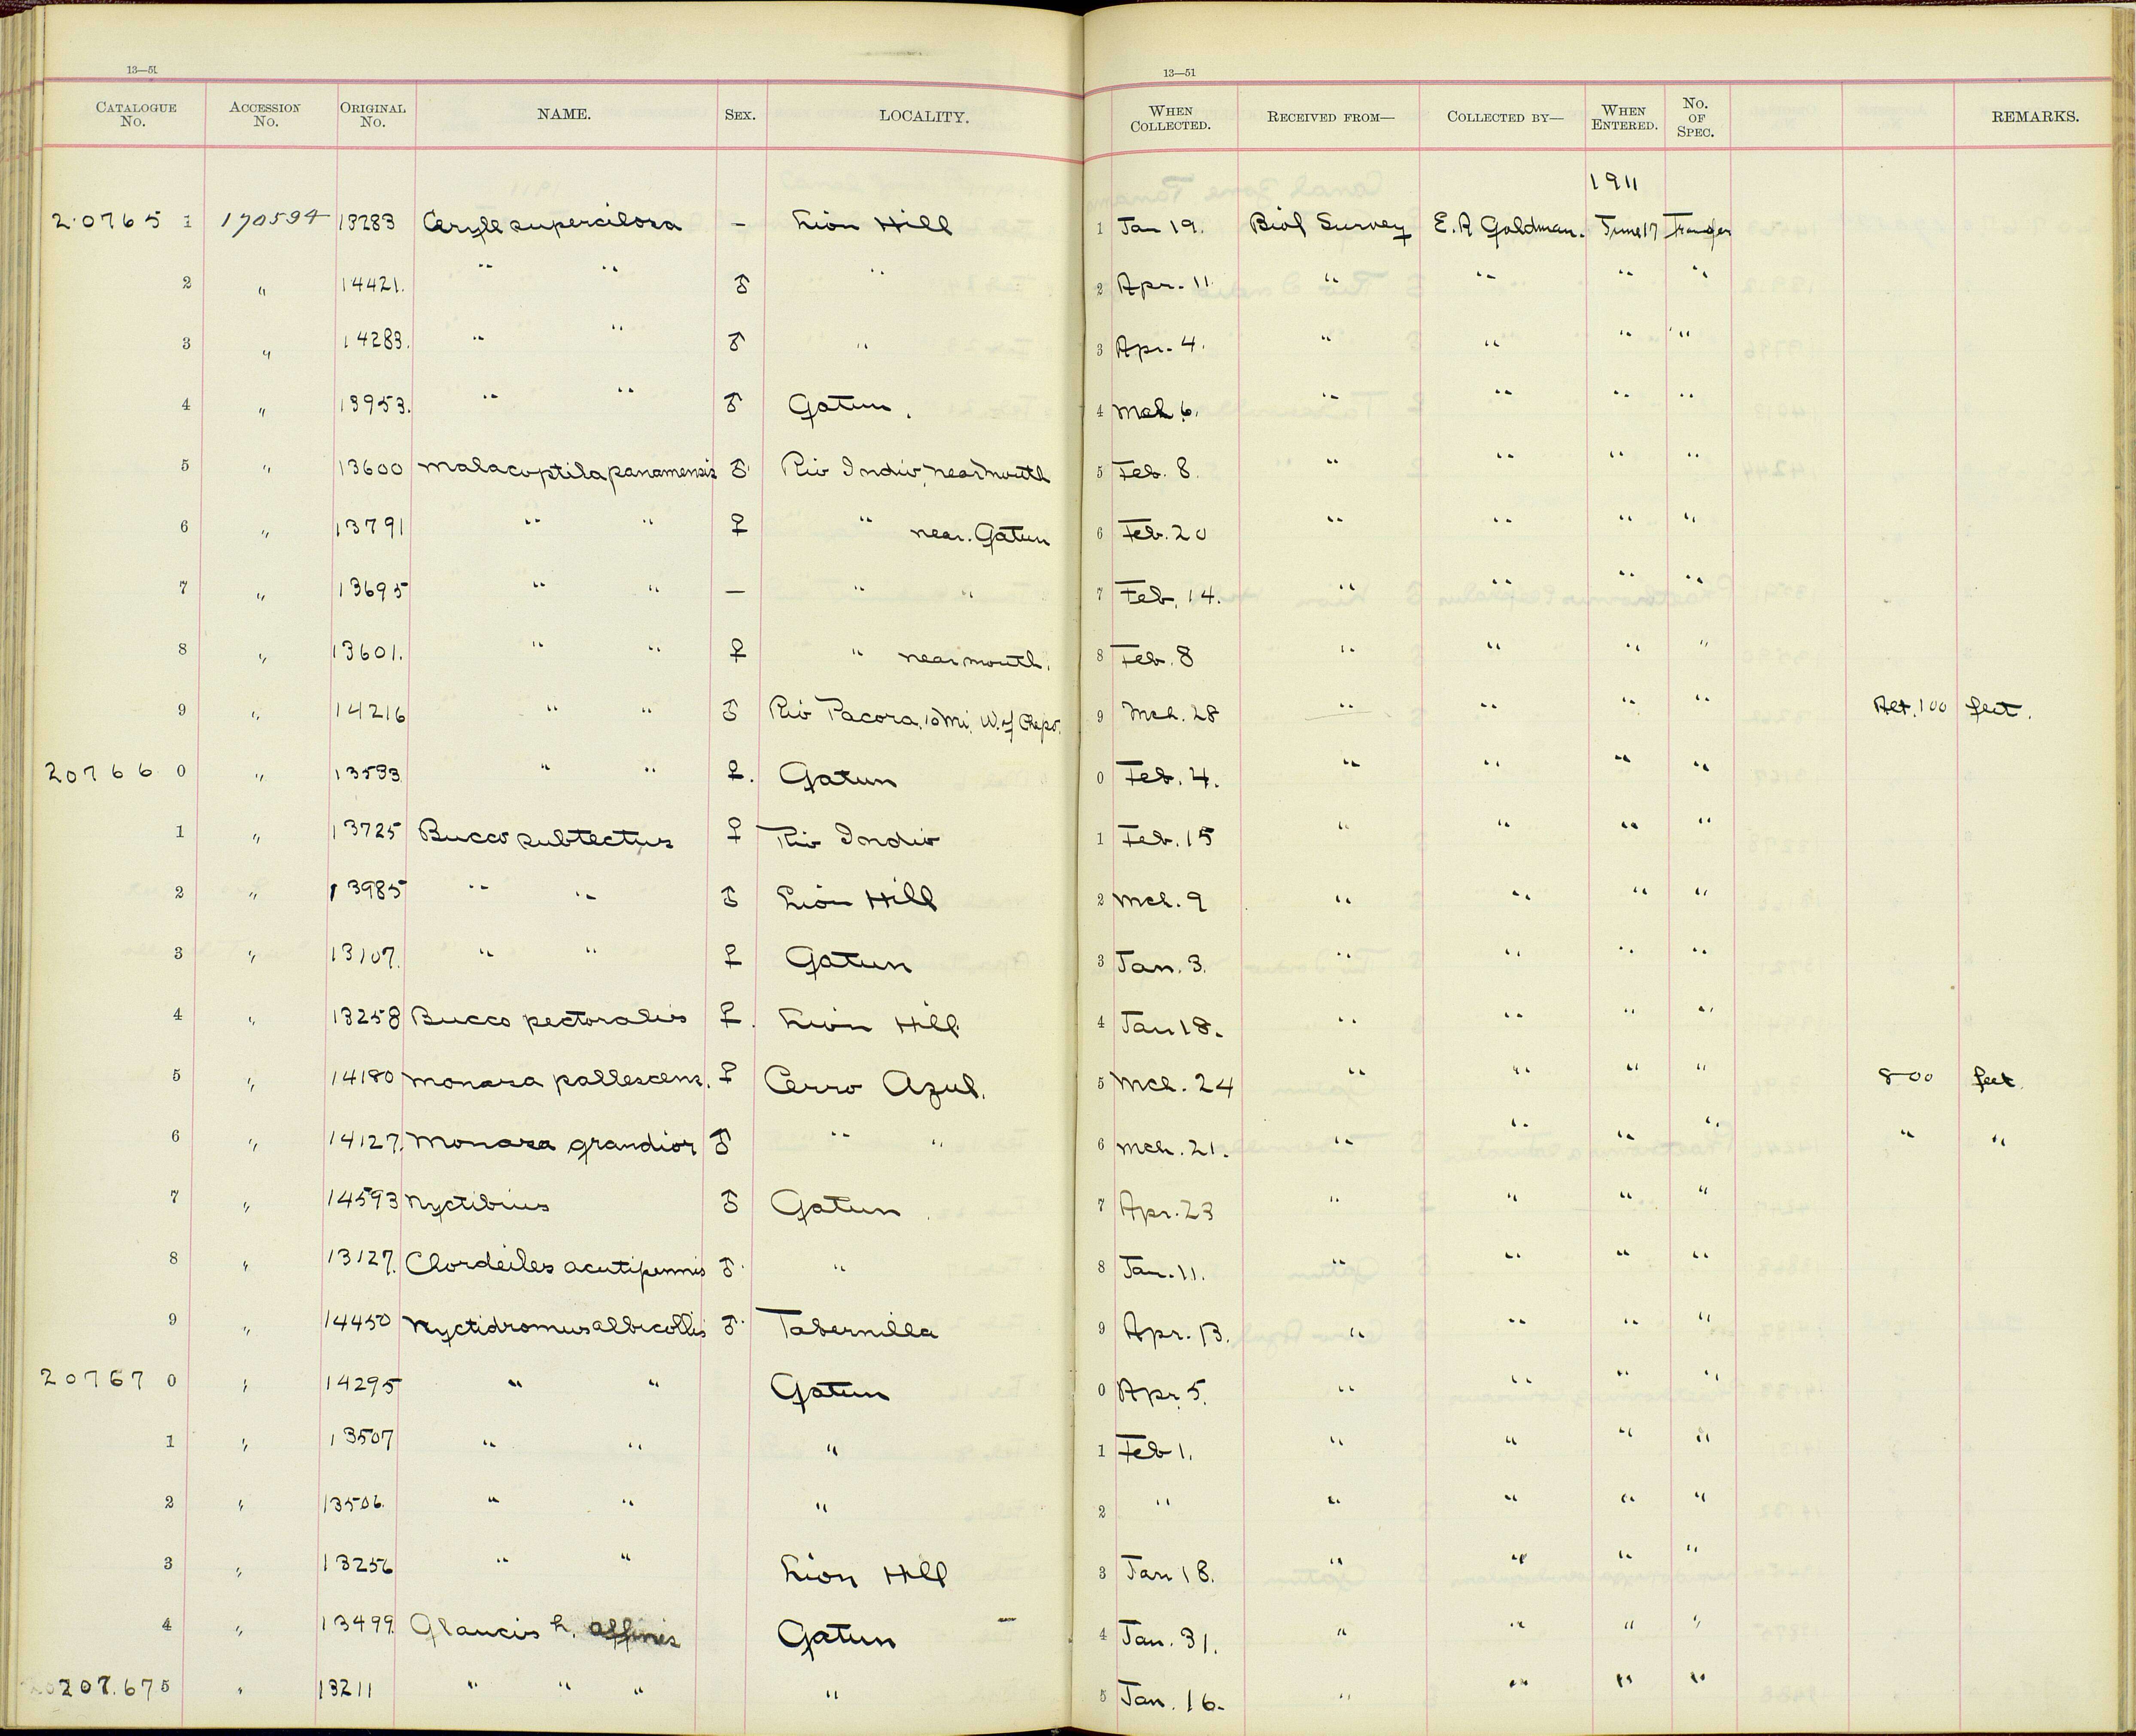 13—51
13—51
CATALOGUE No. ACCESSION No. ORIGINAL No. NAME. SEX. LOCALITY. WHEN COLLECTED. RECEIVED FROM— COLLECTED BY— WHEN ENTERED. No. OF SPEC. REMARKS.
1911
20765 1 170594 13283 Ceryle superciliosa – Lion Hill 1 Jan 19. Biol Survey E.A Goldman. June 17 Transfer
2 " 14421. " " ♂ " 2 Apr. 11 " " " "
3 " 14283. " " ♂ " 3 Apr. 4. " " " "
4 " 13953. " " ♂ Gatun. 4 Mch 6. " " " "
5 " 13600 Malacoptila panamensis ♂ Rio Indio, near mouth 5 Feb. 8. " " " "
6 " 13791 " " ♀ " near. Gatun 6 Feb. 20 " " " "
7 " 13695 " " — " " 7 Feb. 14. " " " "
8 " 13601. " " ♀ " near mouth. 8 Feb. 8 " " " "
9 " 14216 " " ♂ Rio Pacora, 10 Mi. W. of Chepo. 9 Mch. 28 " " " " Alt. 100 feet.
20766 0 " 13533 " " ♀. Gatun 0 Feb. 4. " " " "
1 " 13725 Bucco subtectus ♀ Rio Indio 1 Feb. 15 " " " "
2 " 13985 " " ♂ Lion Hill 2 Mch. 9 " " " "
3 " 13107. " " ♀ Gatun 3 Jan. 3. " " " "
4 " 13258 Bucco pectoralis ♀. Lion Hill 4 Jan 18. " " " "
5 " 14180 Monasa pallescens. ♀ Cerro Azul. 5 Mch. 24 " " " " 800 feet.
6 " 14127. Monasa grandior ♂ " " 6 Mch. 21. " " " " " "
7 " 14593 Nyctibius ♂ Gatun 7 Apr. 23 " " " "
8 " 13127. Chordeiles acutipennis ♂ " 8 Jan. 11. " " " "
9 " 14450 Nyctidromus albicollis ♂ Tabernilla 9 Apr. 13. " " " "
20767 0 " 14295 " " Gatun 0 Apr. 5. " " " "
1 " 13507 " " " 1 Feb 1. " " " "
2 " 13506. " " " 2 " " " " "
3 " 13256 " " Lion Hill 3 Jan 18. " " " "
4 " 13499. Glaucis h. affinis Gatun 4 Jan. 31. " " " "
207.67 5 " 13211 " " " " 5 Jan. 16. " " " "